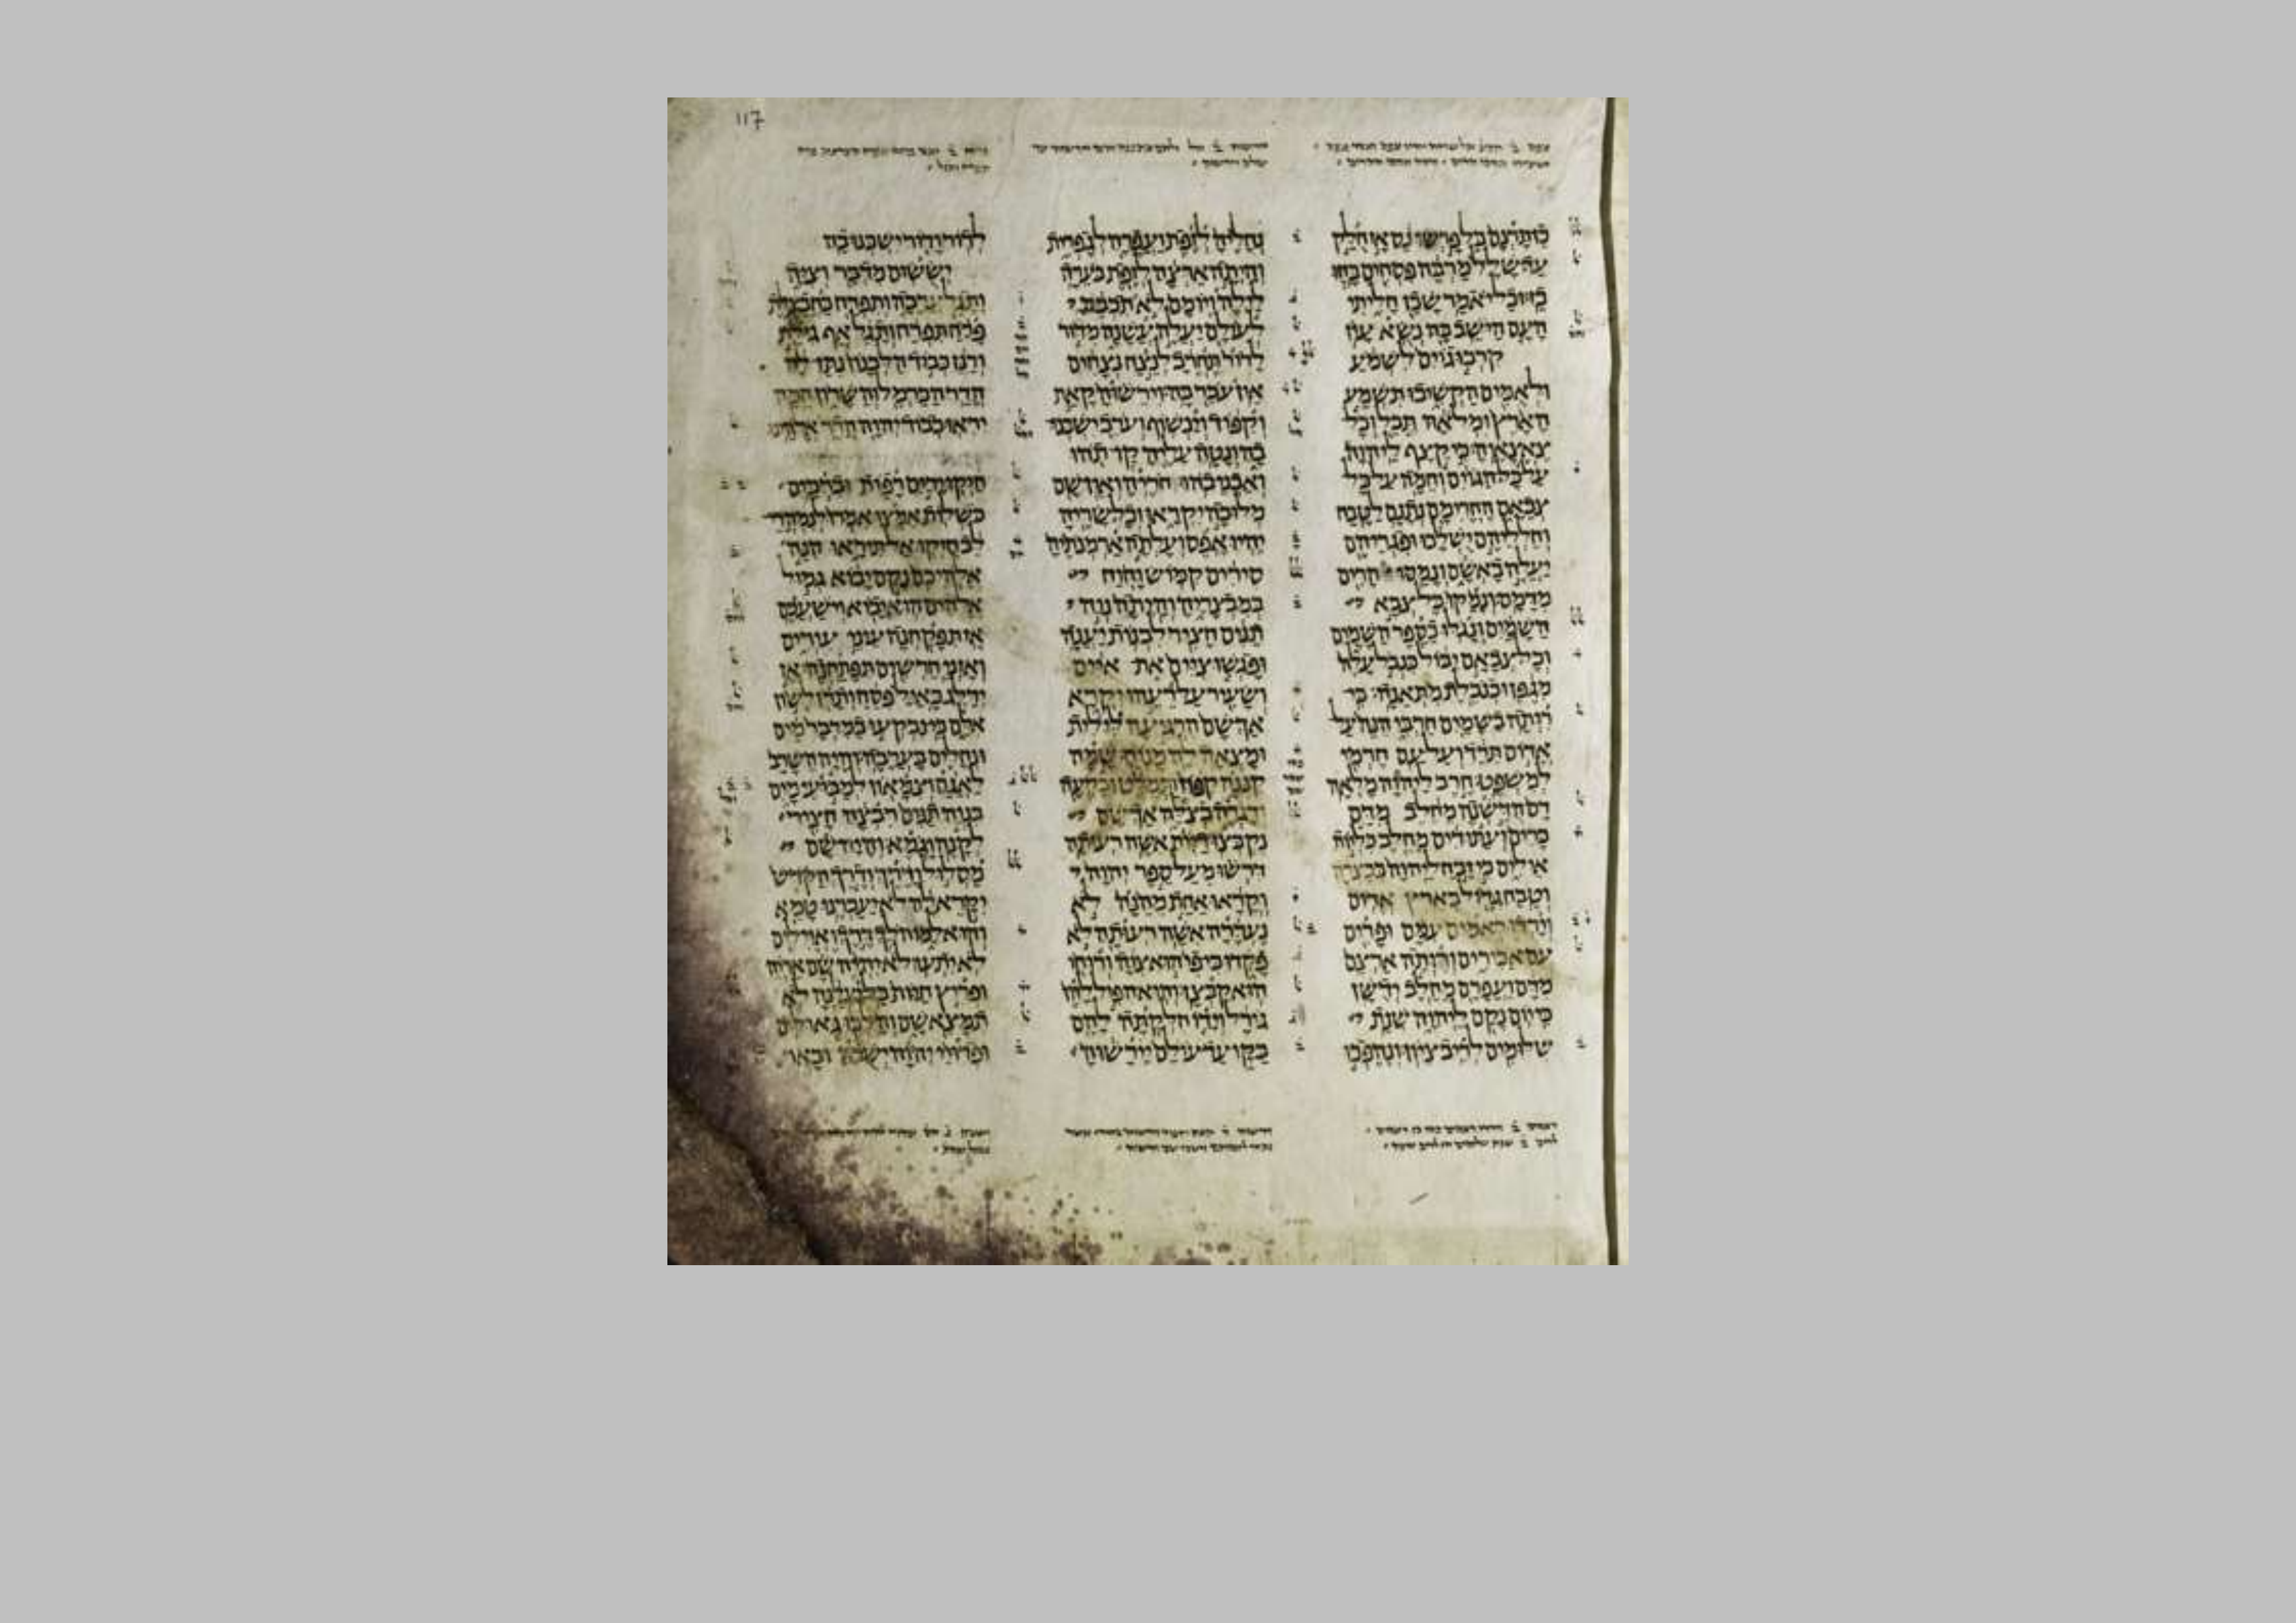 117
כן תרנם בל פרשו נס אז חלק
עד שלל מרבה פסחים בזזו
בז ובל יאמר שכן חליתי
העם הישב בה נשא עון
קרבו גוים לשמע
ולאמים הקשיבו תשמע
הארץ ומלאה תבל וכל
צאצאיה כי קצף ליהוה
על כל הגוים וחמה על כל
צבאם החרימם נתנם לטבח
וחלליהם ישלכו ופגריהם
יעלה באשם ונמסו הרים
מדמם ונמקו כל צבא
השמים ונגלו כספר השמים
וכל צבאם יבול כנבל עלה
מגפן וכנבלת מתאנה כי
רותה בשמים חרבי הנה על
אדום תרד ועל עם חרמי
למשפט חרב ליהוה מלאה
דם הדשנה מחלב מדם
כרים ועתודים מחלב כליות
אילים כי זבח ליהוה בבצרה
וטבח גדול בארץ אדום
וירדו ראמים עמם ופרים
עם אבירים ורותה ארצם
מדם ועפרם מחלב ידשן
כי יום נקם ליהוה שנת
שלומים לריב ציון ונהפכו
נחליה לזפת ועפרה לגפרית
והיתה ארצה לזפת בערה
לילה ויומם לא תכבה
לעולם יעלה עשנה מדור
לדור תחרב לנצח נצחים
אין עבר בה וירשוה קאת
וקפוד וינשוף וערב ישכנו
בה ונטה עליה קו תהו
ואבני בהו חריה ואין שם
מלוכה יקראו וכל שריה
יהיו אפס ועלתה ארמנתיה
סירים קמוש וחוח
במבצריה והיתה נוה
תנים חציר לבנות יענה
ופגשו ציים את איים
ושעיר על רעהו יקרא
אך שם הרגיעה לילית
ומצאה לה מנוח שמה
קננה קפוז ותמלט ובקעה
ודגרה בצלה אך שם
נקבצו דיות אשה רעותה
דרשו מעל ספר יהוה
וקראו אחת מהנה לא
נעדרה אשה רעותה לא
פקדו כי פי הוא צוה ורוחו
הוא קבצן והוא הפיל להן
גורל וידו חלקתה להם
בקו עד עולם יירשוה
לדור ודור ישכנו בה
יששום מדבר וציה
ותגל ערבה ותפרח כחבצלת
פרח תפרח ותגל אף גילת
ורנן כבוד הלבנון נתן לה
הדר הכרמל והשרון המה
יראו כבוד יהוה הדר אלהינו
חזקו ידים רפות וברכים
כשלות אמצו אמרו לנמהרי
לב חזקו אל תיראו הנה
אלהיכם נקם יבוא גמול
אלהים הוא יבוא וישעכם
אז תפקחנה עיני עורים
ואזני חרשים תפתחנה אז
ידלג כאיל פסח ותרן לשון
אלם כי נבקעו במדבר מים
ונחלים בערבה והיה השרב
לאגם וצמאון למבועי מים
בנוה תנים רבצה חציר
לקנה וגמא והיה שם
מסלול ודרך ודרך הקדש
יקרא לה לא יעברנו טמא
והוא למו הלך דרך ואוילים
לא יתעו לא יהיה שם אריה
ופריץ חיות בל יעלנה לא
תמצא שם והלכו גאולים
ופדויי יהוה ישבון ובאו